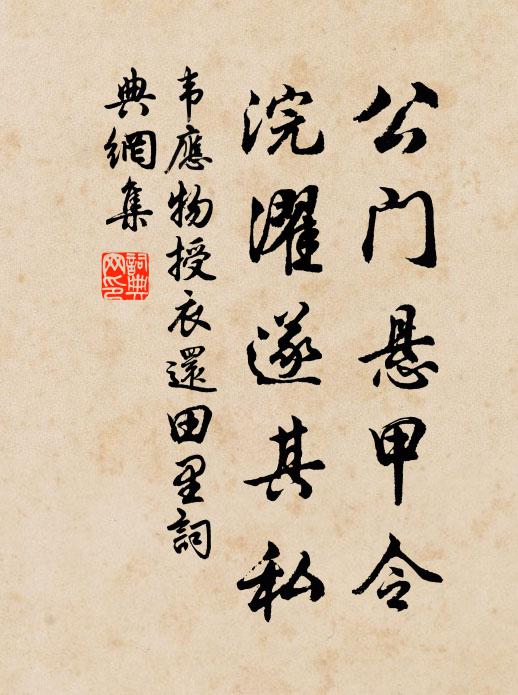 公门悬甲令
浣濯遂其私
韦應物授衣還田里詞
典網集
詞典網印